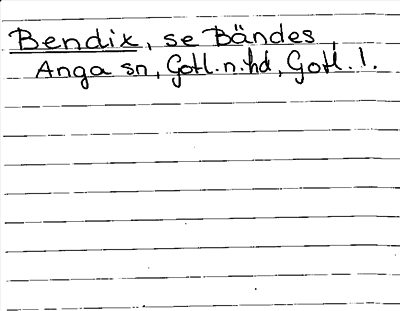 Bendix, se Bändes,
Anga sn, Gotl. n. hd, Gotl. l.